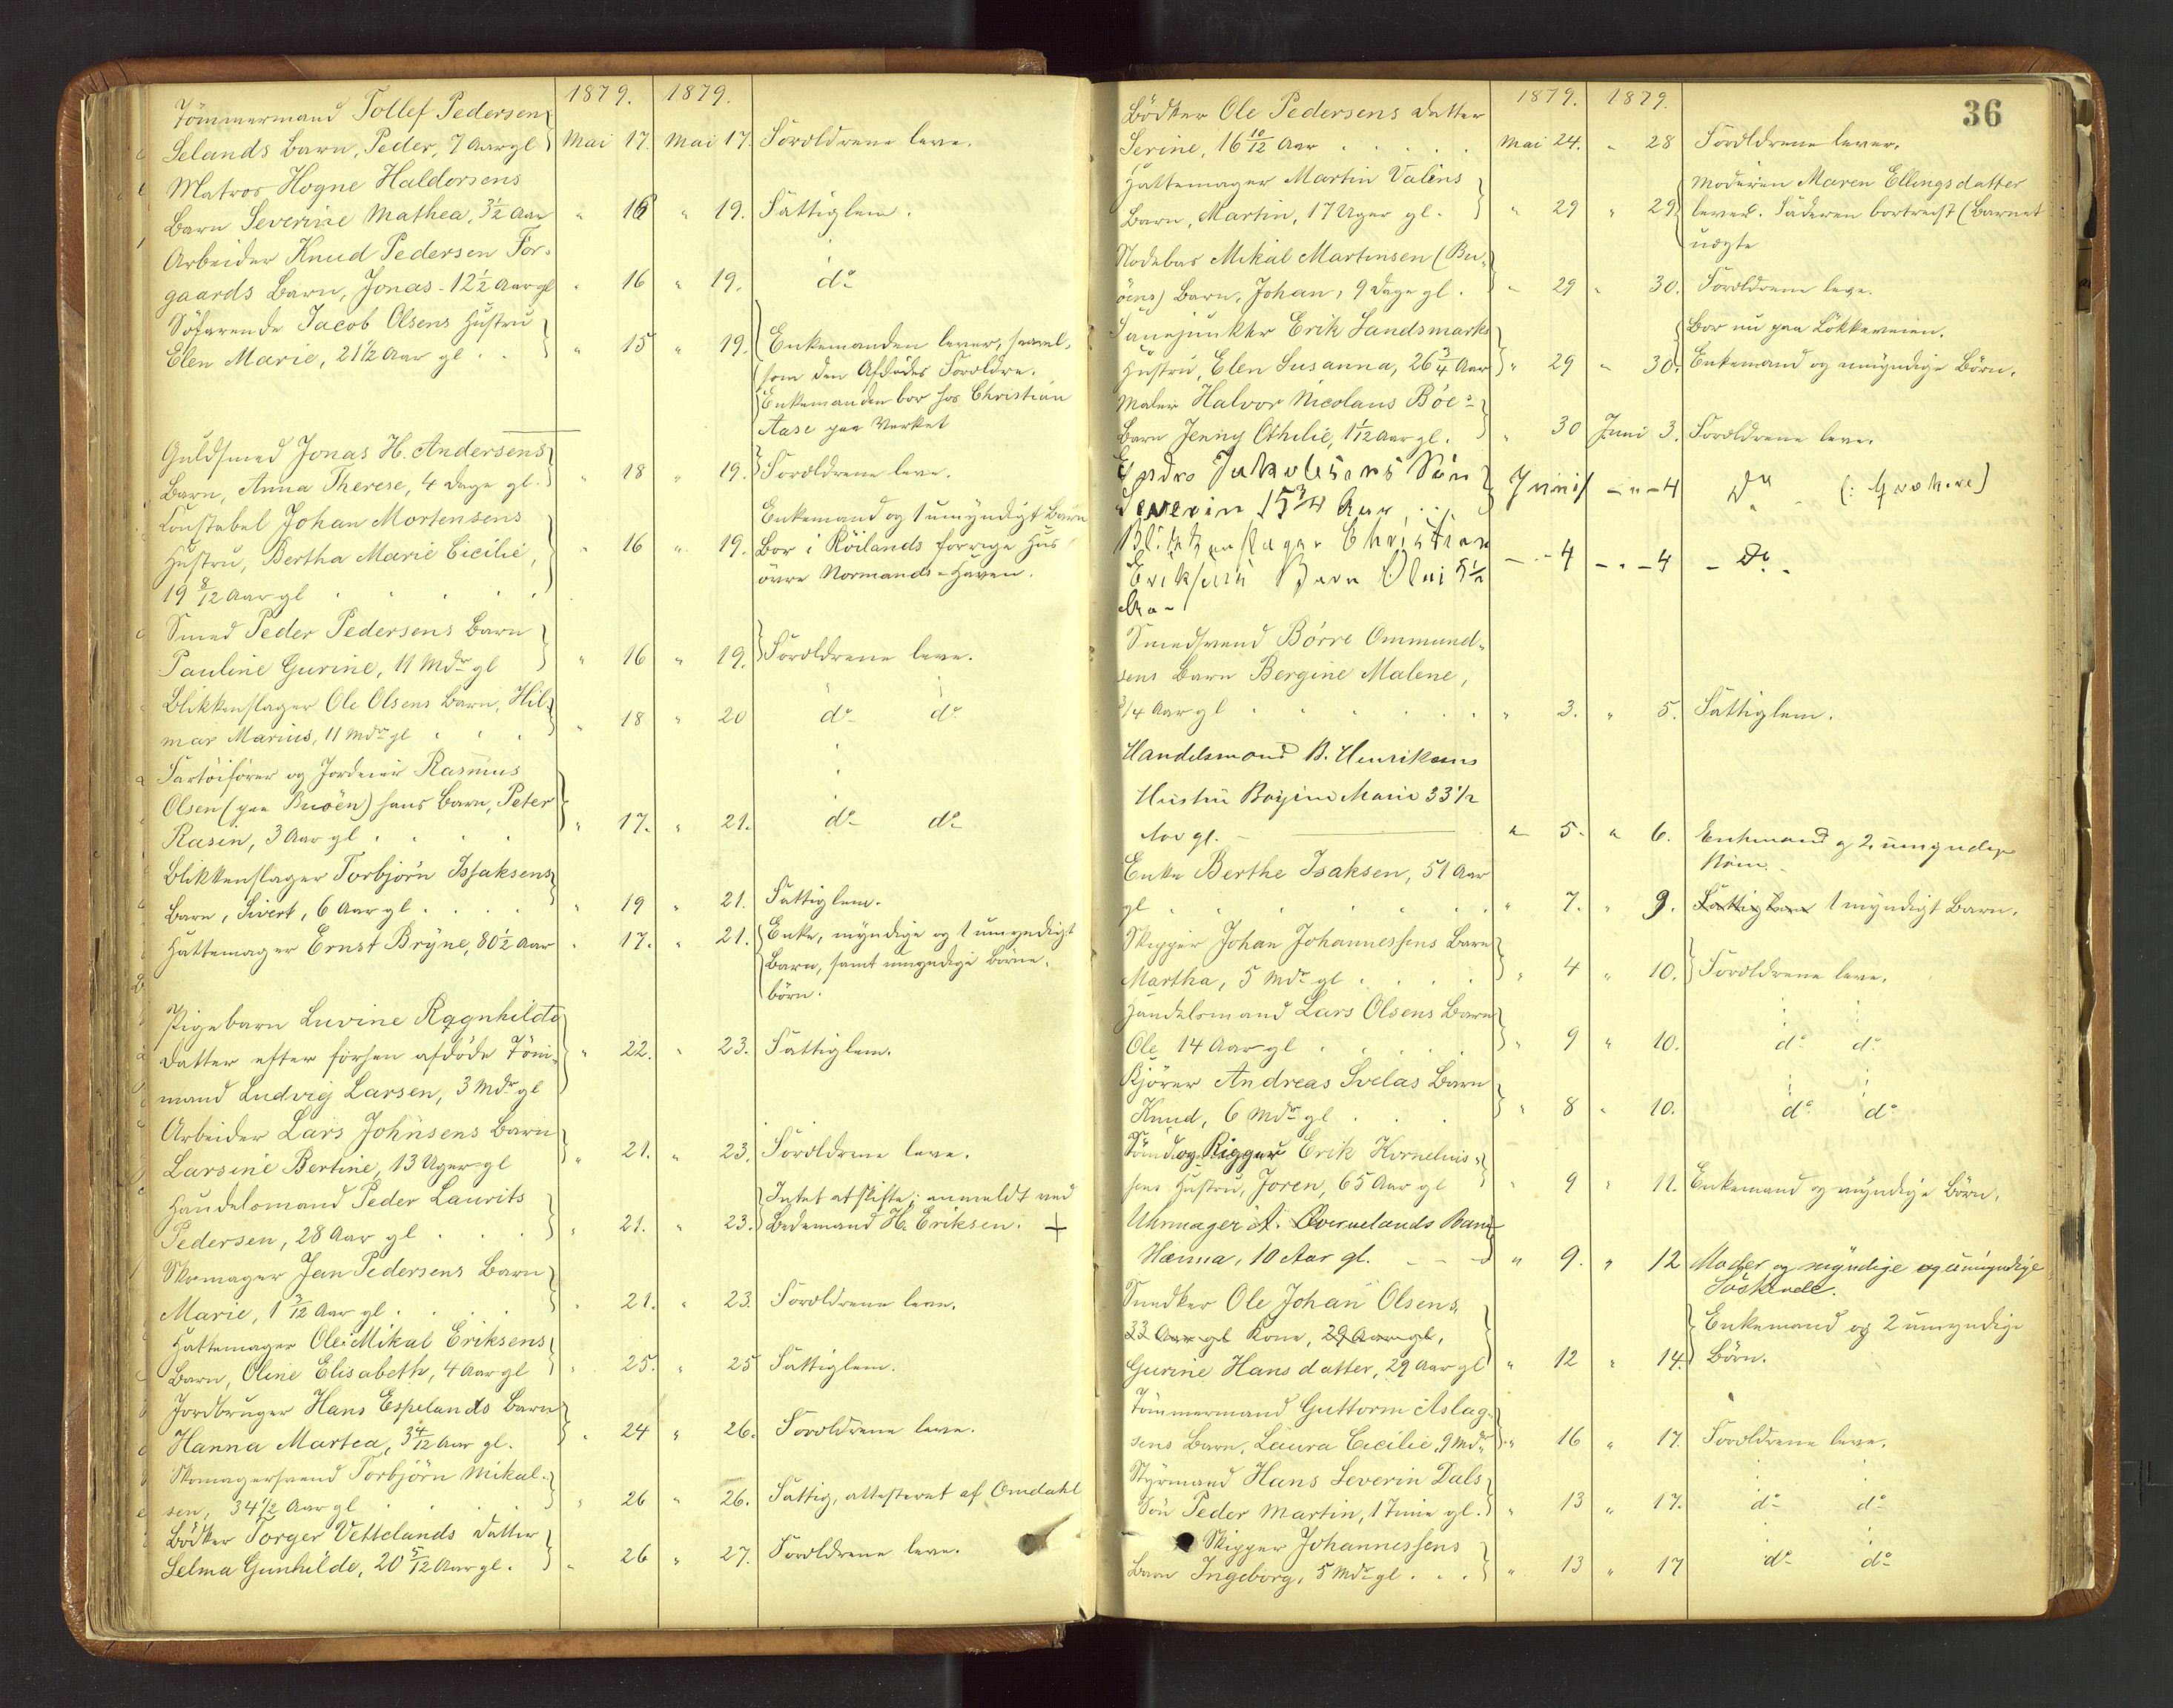 1879. 1879.
Tömmermand Tollef Pedersen
Selands Barn, Peder, 7 Aar gl Mai 17. Mai 17. Forældrene leve.
Matros Hogne Haldorsens
Barn Severine Mathea, 3 1/2 Aar " 16 " 19. Fattiglem.
Arbeider Knud Pedersen For-
gaards Barn, Jonas - 12 1/2 Aar gl " 16 " 19. do
Söfarende Jacob Olsens Hustru
Elen Marie, 21 1/2 Aar gl . . " 15 " 19. Enkemanden lever, saavel
som den Afdödes Forældre.
Enkemanden bor hos Christian
Aase paa Verket
Guldsmed Jonas H. Andersens
Barn, Anna Therese, 4 Dage gl. " 18 " 19. Forældrene leve.
Konstabel Johan Mortensens
Hustru, Bertha Marie Cicilie, " 16 " 19. Enkemand og 1 umyndigt Barn
Bor i Röilands forrige Hus
19 8/12 Aar gl övre Normands-Haven.
Smed Peder Pedersens Barn
Pauline Gurine, 11 Mdr gl " 16 " 19. Forældrene leve.
Blikkenslager Ole Olsens Barn, Hil-
mar Marius, 11 Mdr gl " 18 " 20 do do
Fartöiförer og Jordeier Rasmus
Olsen (paa Buöen) hans Barn, Peter
Rasin, 3 Aar gl " 17. " 21. do do
Blikkenslager Torbjörn Issaksens
Barn, Sivert, 6 Aar gl . " 19 " 21. Fattiglem.
Hattemager Ernst Bryne, 80 1/2 Aar " 17. " 21. Enke, myndige og 1 umyndigt
Barn, samt umyndige Börne-
börn.
Pigebarn Luvine Ragnhilde
Datter efter forhen afdöde Töm-
mand Ludvig Larsen, 3 Mdr gl " 22. " 23. Fattiglem.
Arbeider Lars Johnsens Barn
Larsine Bertine, 13 Uger gl " 21. " 23. Forældrene leve.
Handelsmand Peder Laurits
Pedersen, 28 Aar gl " 21. " 23. Intet at skifte; anmeldt ved
Bedemand H. Eriksen. +
Skomager Jan Pedersens Barn
Marie, 1 3/12 Aar gl " 21. " 23. Forældrene leve.
Hattemager Ole Mikal Eriksens
Barn, Oline Elisabeth, 4 Aar gl " 25. " 25 Fattiglem.
Jordbruger Hans Espelands Barn
Hanna Martea, 3 4/12 Aar gl. " 24 " 26. Forældrene leve.
Skomagersvend Torbjörn Mikal-
sen, 34 1/2 Aar gl " 26 " 26. Fattig, attesteret af Omdahl
Bödker Torger Vettelands Datter
Selma Gunhilde, 20 5/12 Aar gl. " 26 " 27. Forældrene leve.
36
1879. 1879.
Bödker Ole Pedersens Datter
Serine, 16 10/12 Aar . . . . . Mai 24. " 28 Forældrene lever.
Hattemager Martin Valens
Barn, Martin, 17 Uger gl. " 29 " 29. Moderen Maren Ellingsdatter
lever. Faderen bortreist (Barnet
uægte
Nodebas Mikal Martinsen (Bu-
öens) Barn, Johan, 9 Dage gl . " 29 " 30. Forældrene leve.
Fanejunker Erik Landsmarks
Hustru, Elen Susanna, 26 3/4 Aar " 29 " 30. Bor nu paa Lökkeveien.
Enkemand og umyndige Börn.
Maler Halvor Nicolaus Böe's
Barn Jenny Othilie, 1 1/2 Aar gl. " 30 Juni 3. Forældrene leve.
Sönn
Severin 15 3/4 Aar Juni 1 - " - 4 do
Blikkenslager Christian
Eriksens Barn Olai 5 1/2 - " - 4 - " - 4 - Do. -
Aar
Smedsvend Börre Ommund-
sens Barn Bergine Malene,
3/4 Aar gl " 3. " 5. Fattiglem.
Handelsmand B. Henriksens
Hustru Bergine Marie 33 1/2
Aar gl. " 5. " 6. Enkemand og 2 umyndige
Börn.
Enke Berthe Isaksen, 51 Aar
gl " 7. " 9. Fattiglem 1 myndigt Barn.
Skipper Johan Johannessens Barn
Martha, 5 Mdr gl " 4 " 10. Forældrene leve.
Handelsmand Lars Olsens Barn
Ole 14 Aar gl " 9 " 10. do do
Kjörer Andreas Svelas Barn
Knud, 6 Mdr gl " 8 " 10. do do
Tömd. og Rigger Erik Kornelius-
sens Hustru, Joren, 65 Aar gl " 9 " 11. Enkemand og myndige Börn.
Uhrmager A. Overnelands Barn
Hanna, 10 Aar gl. " 9. " 12 Moder og myndige og umyndige
Söskende.
Snedker Ole Johan Olsens
33 Aar gl Kone, 29 Aar gl,
Gurine Hansdatter, 29 Aar gl " 12 " 14. Enkemand og 2 umyndige
Börn.
Tömmermand Guttorm Aslag-
sens Barn, Laura Cecilie, 9 Mdr " 16 " 17. Forældrene leve.
Styrmand Hans Severin Dals
Sön Peder Martin, 1 Time gl. " 13 " 17. do do
Skipper Johannessens
Barn Ingeborg, 5 Mdr gl . . . " 13 " 17 do do